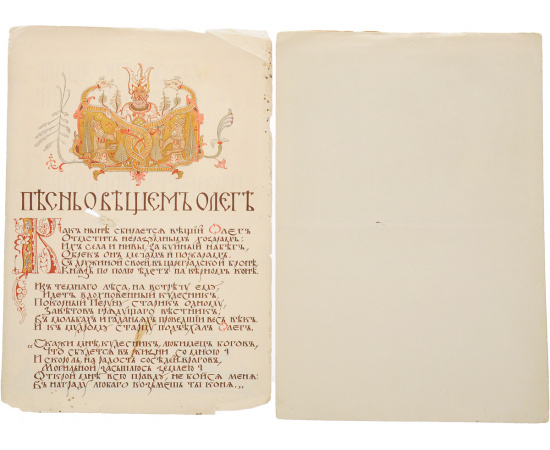 ПѢСНЬ О ВѢЩЕМЪ ОЛЕГѢ
Какъ нынѣ сбирается вѣщій Олегъ
Отмстить неразумнымъ хозарамъ:
Ихъ села и нивы за буйный набѣгъ
Обрекъ онъ мечамъ и пожарамъ.
Съ дружиной своей въ цареградской бронѣ
Князь по полю ѣдетъ на вѣрномъ конѣ.
Изъ темнаго лѣса, на встрѣчу ему,
Идетъ вдохновенный кудесникъ,
Покорный Перуну старикъ одному,
Завѣтовъ грядущаго вѣстникъ,
Въ мольбахъ и гаданьяхъ проведшій весь вѣкъ.
И къ мудрому старцу подъѣхалъ Олегъ.
„Скажи мнѣ, кудесникъ, любимецъ боговъ,
Что сбудется въ жизни со мною?
И скоро ль, на радость сосѣдей‑враговъ,
Могильной засыплюсь землею?
Открой мнѣ всю правду, не бойся меня:
Въ награду любаго возьмешь ты коня.„